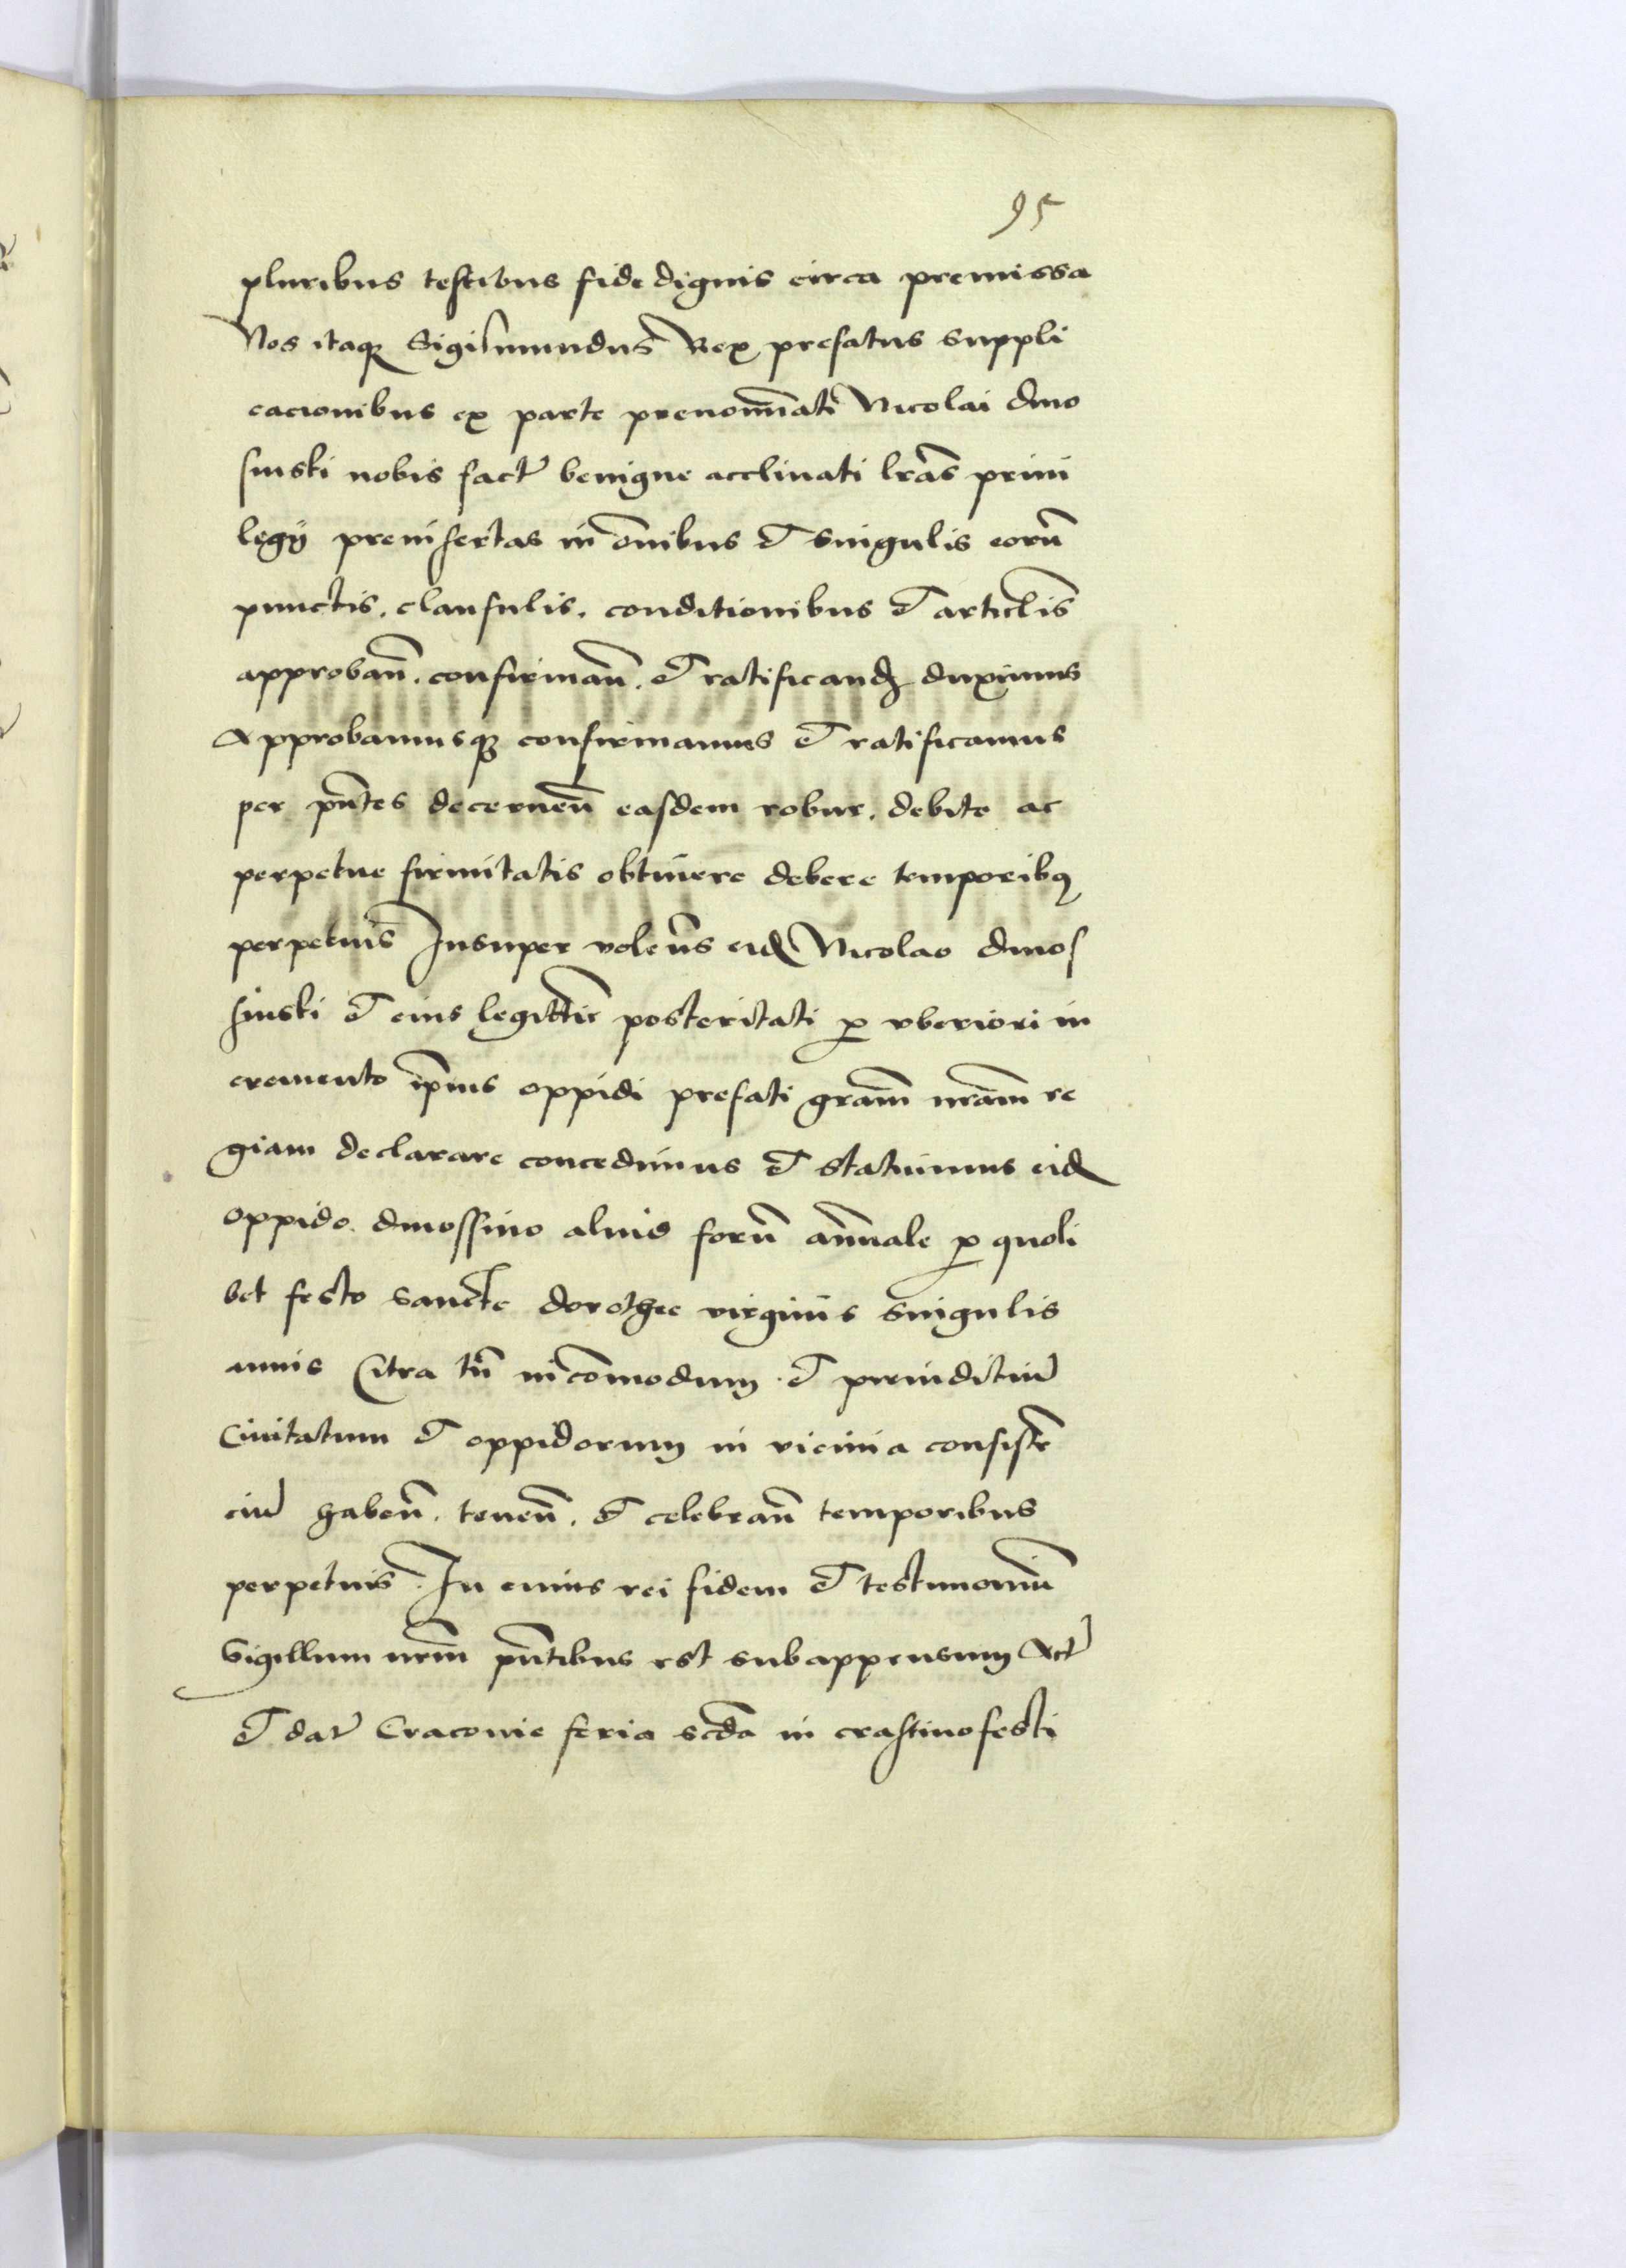 95
pluribus testibus fidedignis circa premissa
Nos itaqꝫ Sigismundus Rex prefatus suppli
cacionibus ex parte prenoiãti Nicolai dmo
sinski nobis fact benigne acclinati lrãs priui
legij preinsertas in oĩnibus et singulis eorũ
punctis, clausulis, conditionibus et articlis
approbañ. confirmañ. et ratificandꝫ duximus
Approbamusqꝫ confirmamus et ratificamus
per pñtes decerneñ easdem robur, debite ac
perpetue firmitatis obtinere debere temporibꝫ
perpetuis Insuper voleñs eid Nicolao dmos
sinski et eius legittie posteritati ꝓ vberiori in
cremento ip̃ius oppidi prefati grãm nrãm re
giam declarare concedimus et statuimus eid
oppido dmossino aliud forũ añuale ꝓ quoli
bet festo sancte dorothee virginis singulis
annis Citra tñ incõmodum et preiuditiũ
Ciuitatum et oppidorum in vicinia consisten
ciũ habeñ. teneñ. et celebrañ temporibus
perpetuis. In cuius rei fidem et testimoniũ
Sigillum nrm̃ pñtibus est subappensum Act
et dat Cracouie feria scda in crastino festi